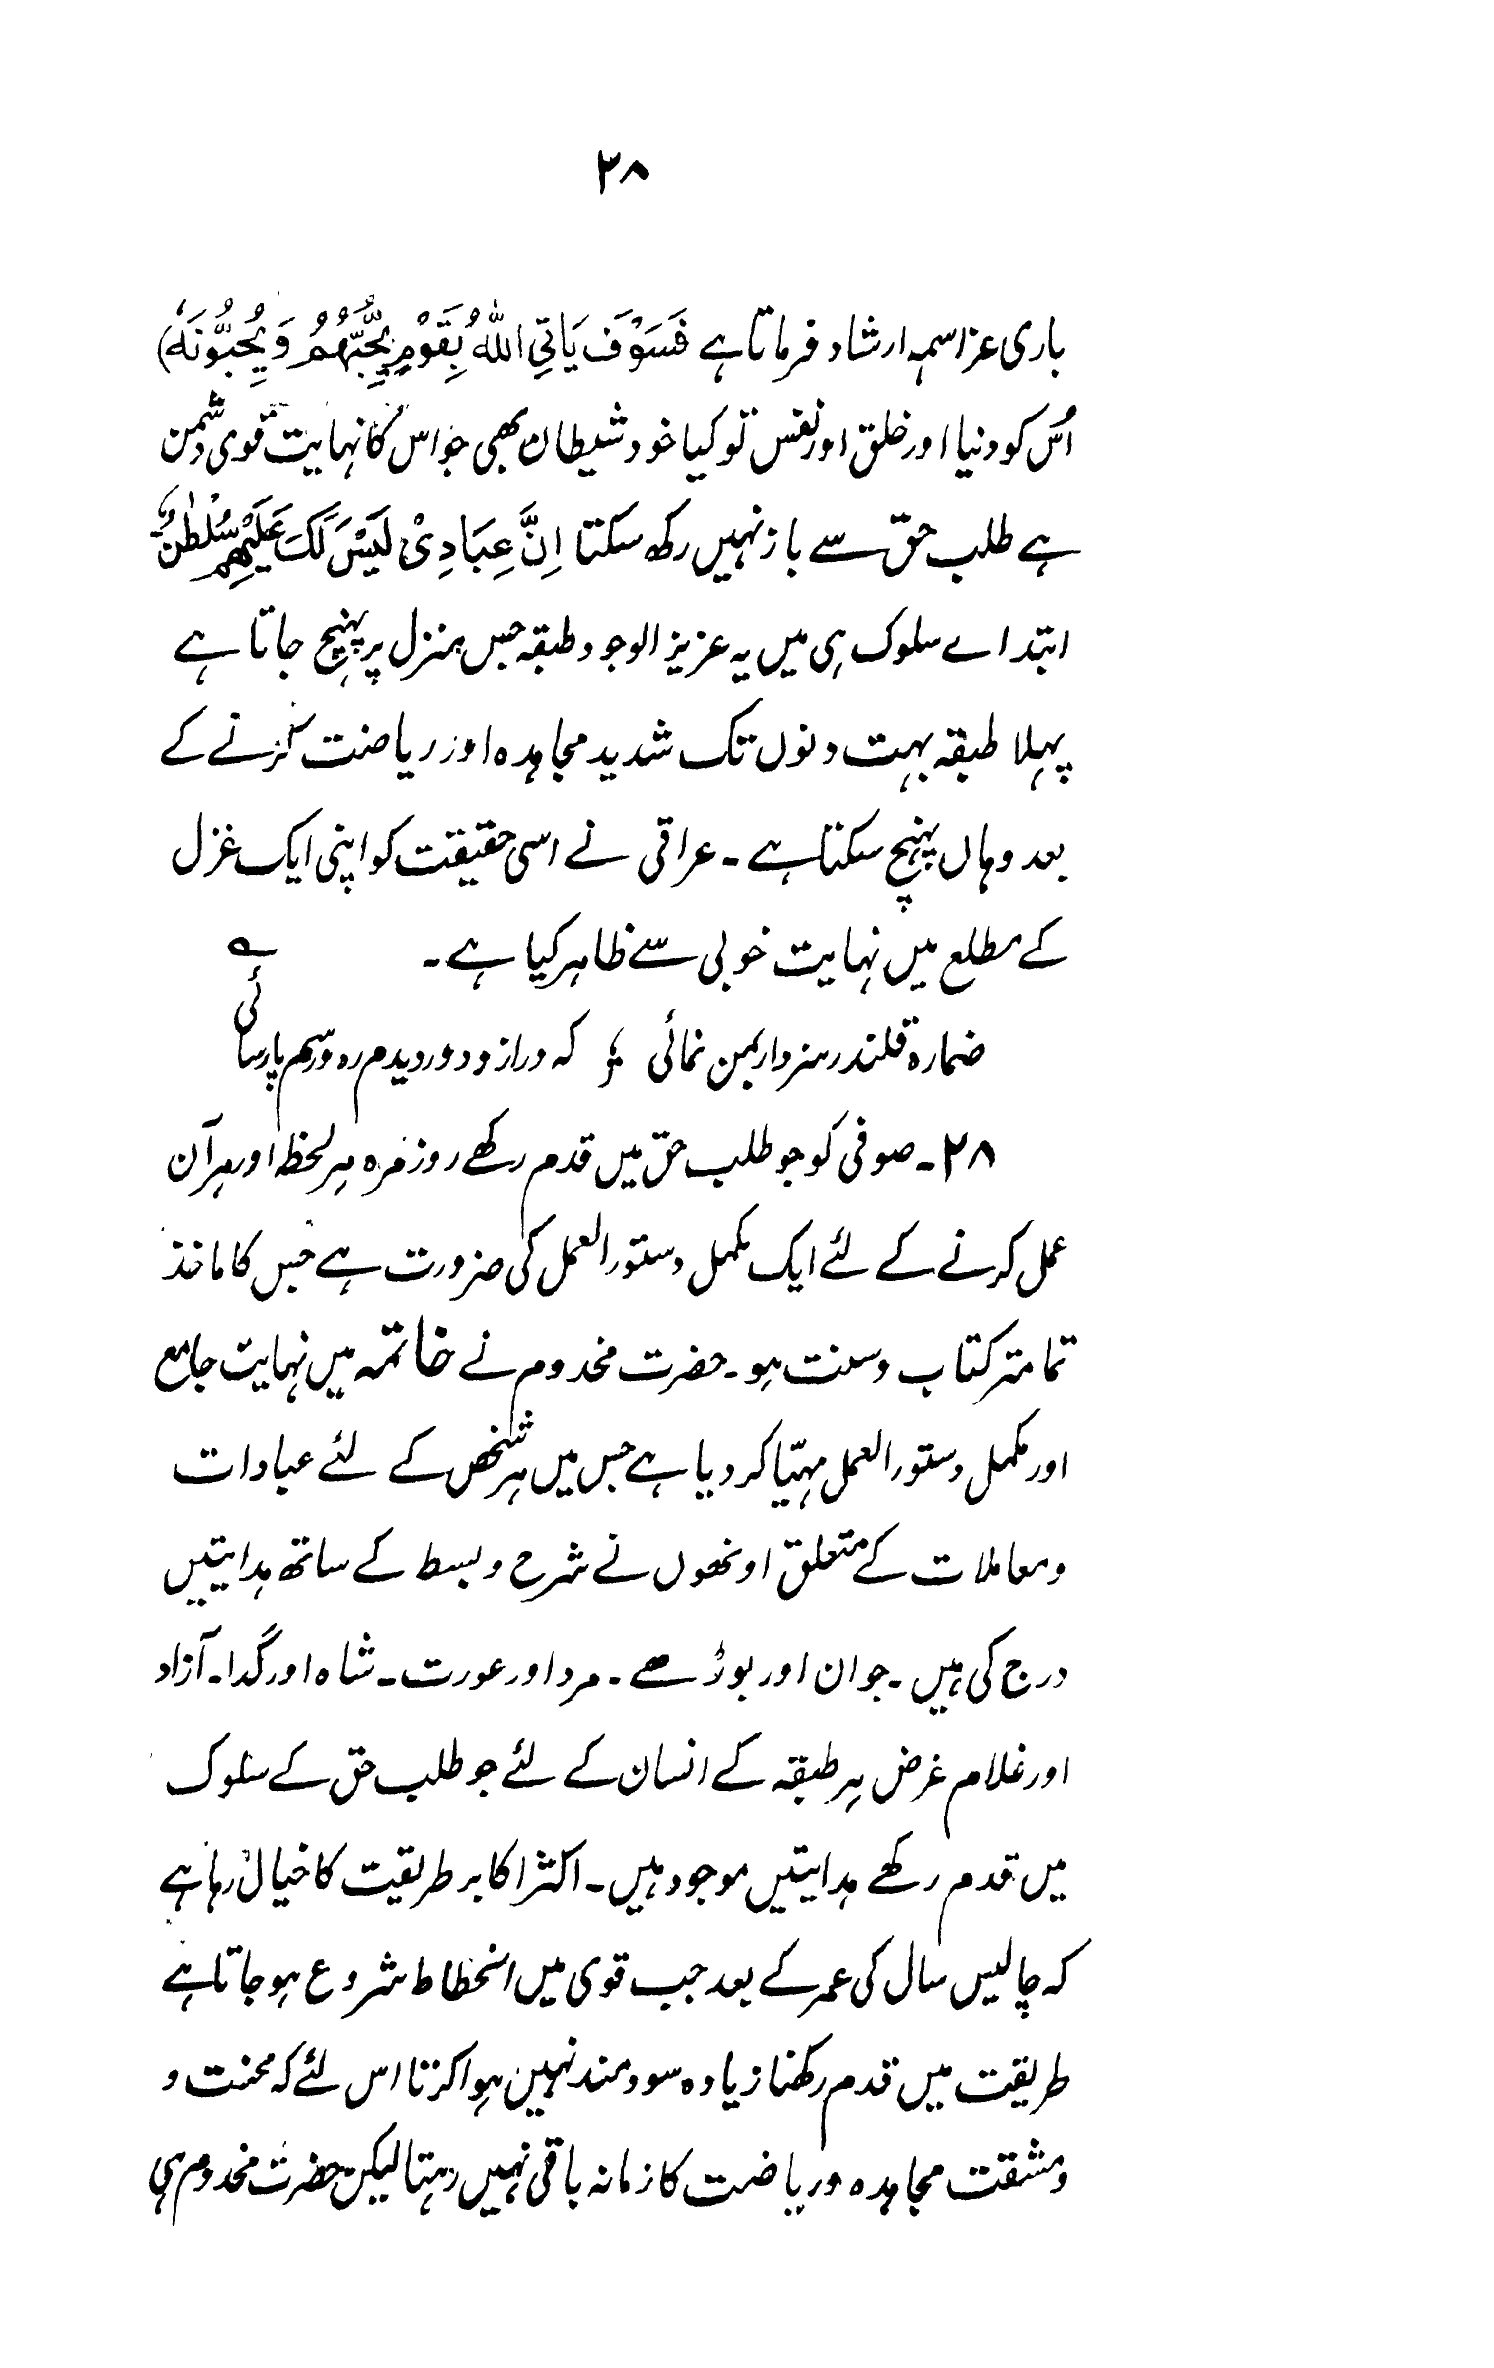 ۲۸
باری عزاسمہ ارشاد فرماتا ہے فَسَوْفَ یَاتِی اللّٰہُ بِقَوْمٍ یُّحِبُّہُمْ وَیُحِبُّوْنَہٗ)
اُس کو دنیا اور خلق اور نفس تو کیا خود شیطان بھی جو اس کا نہایت قوی دشمن
ہے طلب حق سے باز نہیں رکھ سکتا اِنَّ عِبَادِیْ لَیْسَ لَکَ عَلَیْہِمْ سُلْطٰنٌ
ابتداے سلوک ہی میں یہ عزیز الوجود طبقہ جس منزل پر پہنچ جاتا ہے
پہلا طبقہ بہت دنوں تک شدید مجاہدہ اور ریاضت کرنے کے
بعد وہاں پہنچ سکتا ہے ۔ عراقی نے اسی حقیقت کو اپنی ایک غزل
کے مطلع میں نہایت خوبی سے ظاہر کیا ہے ۔ ؎
صنما رہ قلندر سزد ار بمن نمائی ؛ کہ دراز و دور دیدم رہ و رسم پارسائی
۲۸ ۔ صوفی کو جو طلب حق میں قدم رکھے روزمرہ ہر لحظہ اور ہر آن
عمل کرنے کے لئے ایک مکمل دستور العمل کی ضرورت ہے جس کا ماخذ
تمامتر کتاب و سنت ہو ۔ حضرت مخدوم نے خاتمہ میں نہایت جامع
اور مکمل دستور العمل مہیّا کر دیا ہے جس میں ہر شخص کے لئے عبادات
و معاملات کے متعلق اونھوں نے شرح و بسط کے ساتھ ہدایتیں
درج کی ہیں ۔ جوان اور بوڑھے ۔ مرد اور عورت ۔ شاہ اور گدا ۔ آزاد
اور غلام غرض ہر طبقہ کے انسان کے لئے جو طلب حق کے سلوک
میں قدم رکھے ہدایتیں موجود ہیں ۔ اکثر اکابر طریقت کا خیال رہا ہے
کہ چالیس سال کی عمر کے بعد جب قوی میں انحطاط شروع ہو جاتا ہے
طریقت میں قدم رکھنا زیادہ سودمند نہیں ہوا کرتا اس لئے کہ محنت و
و مشقت مجاہدہ و ریاضت کا زمانہ باقی نہیں رہتا لیکن حضرت مخدوم ہی